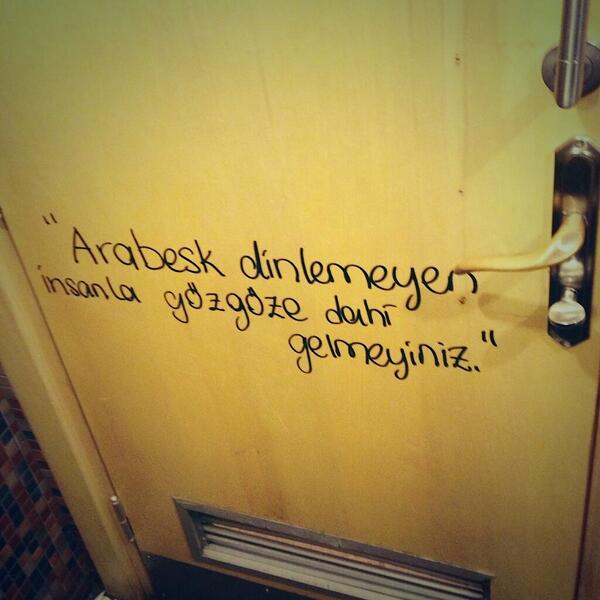 "Arabesk dinlemeyen
insanla gözgöze dahi
gelmeyiniz."